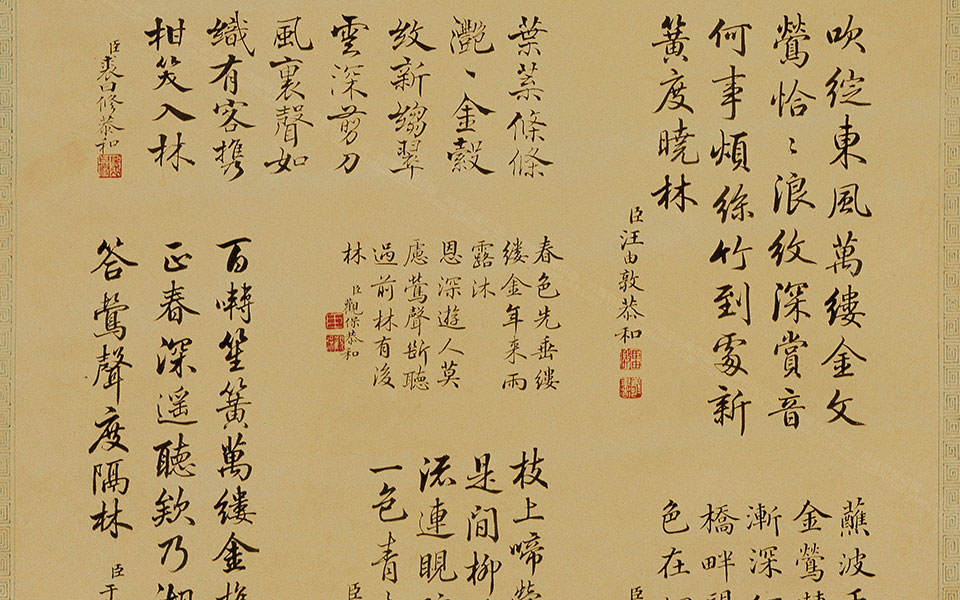 吹綻東風萬縷金文
鶯恰〻浪紋深賞音
何事煩絲竹到處新
簧度曉林
臣汪由敦恭和
葉葉條條
灔〻金縠
紋新縐翠
雲深剪刀
風裏聲如
織有客攜
柑笑入林
臣裘曰修恭和
春色先垂縷
縷金年來雨
露沐
恩深遊人莫
慝鶯聲斷聽
過前林有後
林
臣觀保恭和
百囀笙簧萬縷金
正春深遥聽欵乃
答鶯聲度隔林
臣于
枝上啼
是間柳
流連睍
一色青
臣
蘸波
金鶯
漸深
橋畔
色在
臣